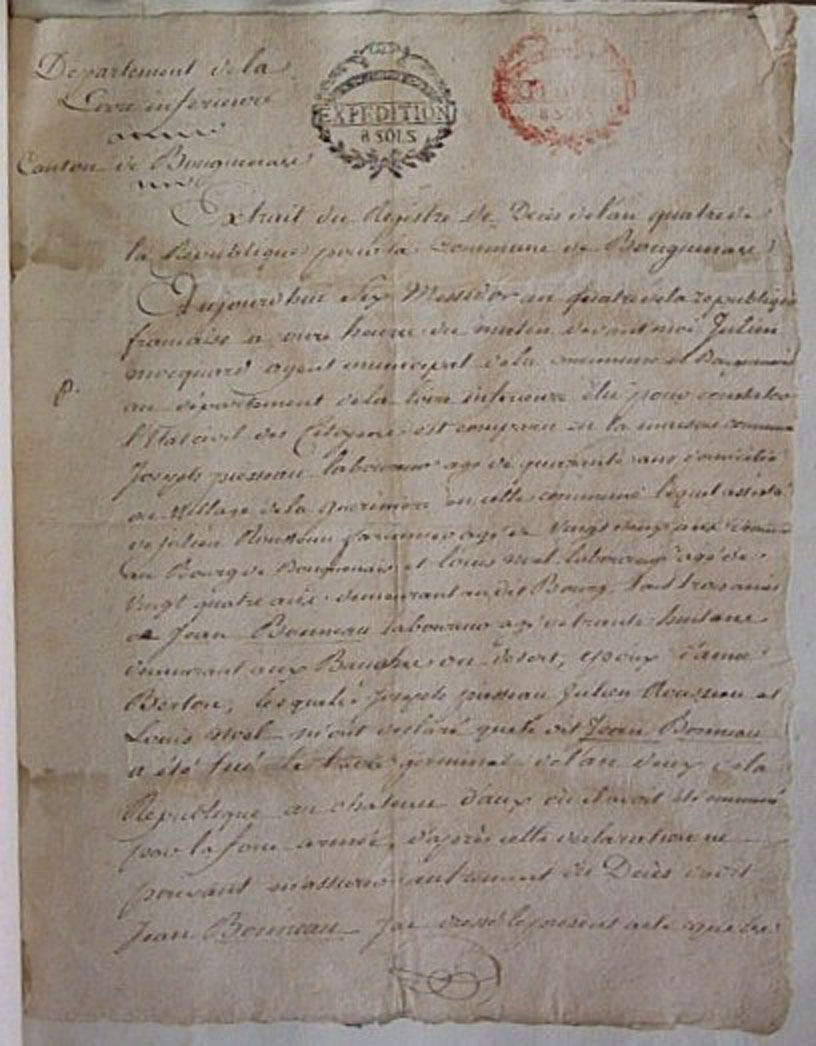 Département de la
Loire inférieure
Canton de Bouguenais
EXPEDITION
8 SOLS
8 SOLS
Extrait du Registre de Décès de l'an quatre de
la République pour la commune de Bouguenais
Aujourdhui six Messidor an quatre de la republique
francaise a onze heure du matin devant moi Julien
mocquard agent municipal de la commune de Bouguenais
au département de la loire inferieure élu pour constater
l'Etat civil des Citoyens est comparu en la maison commune
Joseph pineau laboureur agé de quarante ans domicilié
au village de la en cette commune lequel assisté
de Julien Rousseau agé de vingt deux ans
au Bourg de Bouguenais et louis noel laboureur agé de
vingt quatre ans demeurant au dit Bourg tout trois amis
de Jean Bonneau laboureur agé de trente huit ans
demeurant aux Bauches ou desert, epoux d'anne
Berton, lesquels Joseph pineau Julien Rousseau et
Louis noel m'ont déclaré que le dit Jean Bonneau
a été tué le treize germinal de l'an deux de la
République au chateau d'aux où il avoit été emmené
par la force armée, d'après cette declaration ne
pouvant m'assurer autrement du Décès dudit
Jean Bonneau J'ai dressé le present acte que les